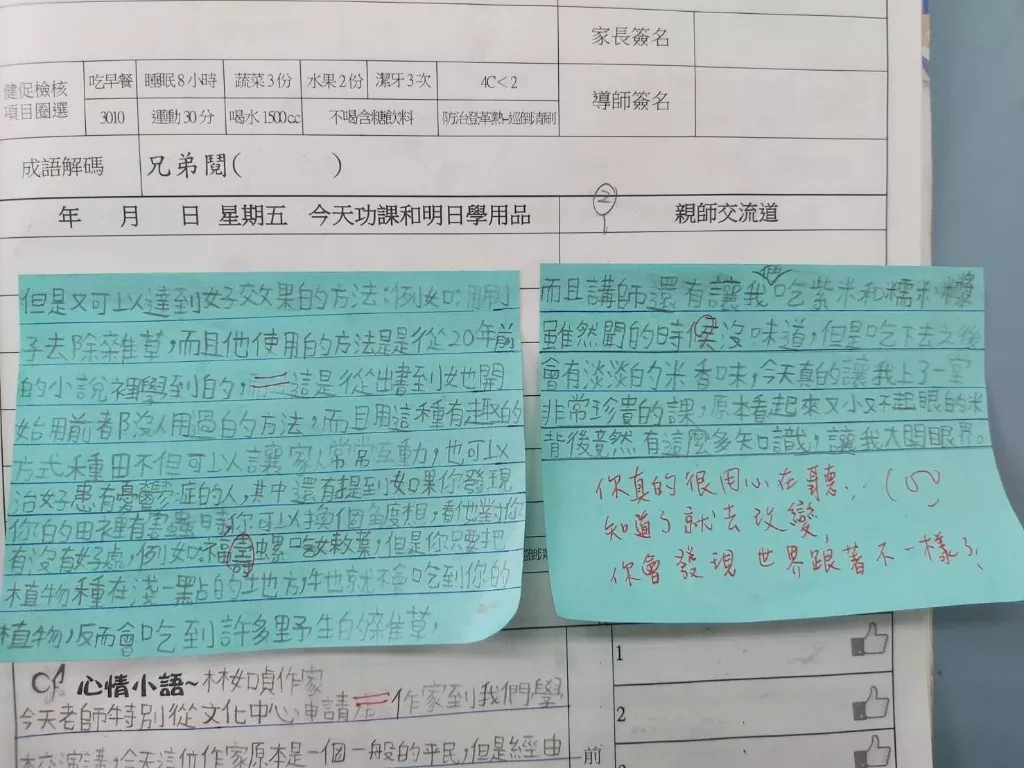 家長簽名
健促檢核
項目圈選
吃早餐 睡眠8小時 蔬菜3份 水果2份 潔牙3次 4C<2
3010 運動30分 喝水1500c.c 不喝含糖飲料 防治登革熱-巡倒清刷
導師簽名
成語解碼 兄弟鬩( )
年 月 日 星期五 今天功課和明日學用品
② 親師交流道
但是又可以達到好效果的方法:例如:用刷
子去除雜草,而且他使用的方法是是從20年前
的小說裡學到的,這是從出書到她開
始用前者都沒人用過的方法,而且用這種有趣的
方式種田不但可以讓家人常常互動,也可以
治好患有憂鬱症的人,其中還有提到如果你發現
你的田裡有害蟲時你可以換個角度想,看他對你
有沒有好處,例如福壽螺吃軟葉,但是你只要把
植物種在淺一點的土地方,牠就不會吃到你的
植物,反而會吃到許多野生的雜草,
而且講師還有讓我們吃紫米和糯米
雖然聞的時候沒味道,但是吃下去之後
會有淡淡的米香味,今天真的讓我上了一堂
非常珍貴的課,原本看起來又小又不起眼的米
背後竟然有這麼多知識,讓我大開眼界。
你真的很用心在聽,
知道了就去改變,
你會發現世界跟著不一樣了,
心情小語~林 作家
今天老師特別從文化中心申請 作家到我們學
校演講,今天這位作家原本是一個一般的平民,但是經由
前
1
2